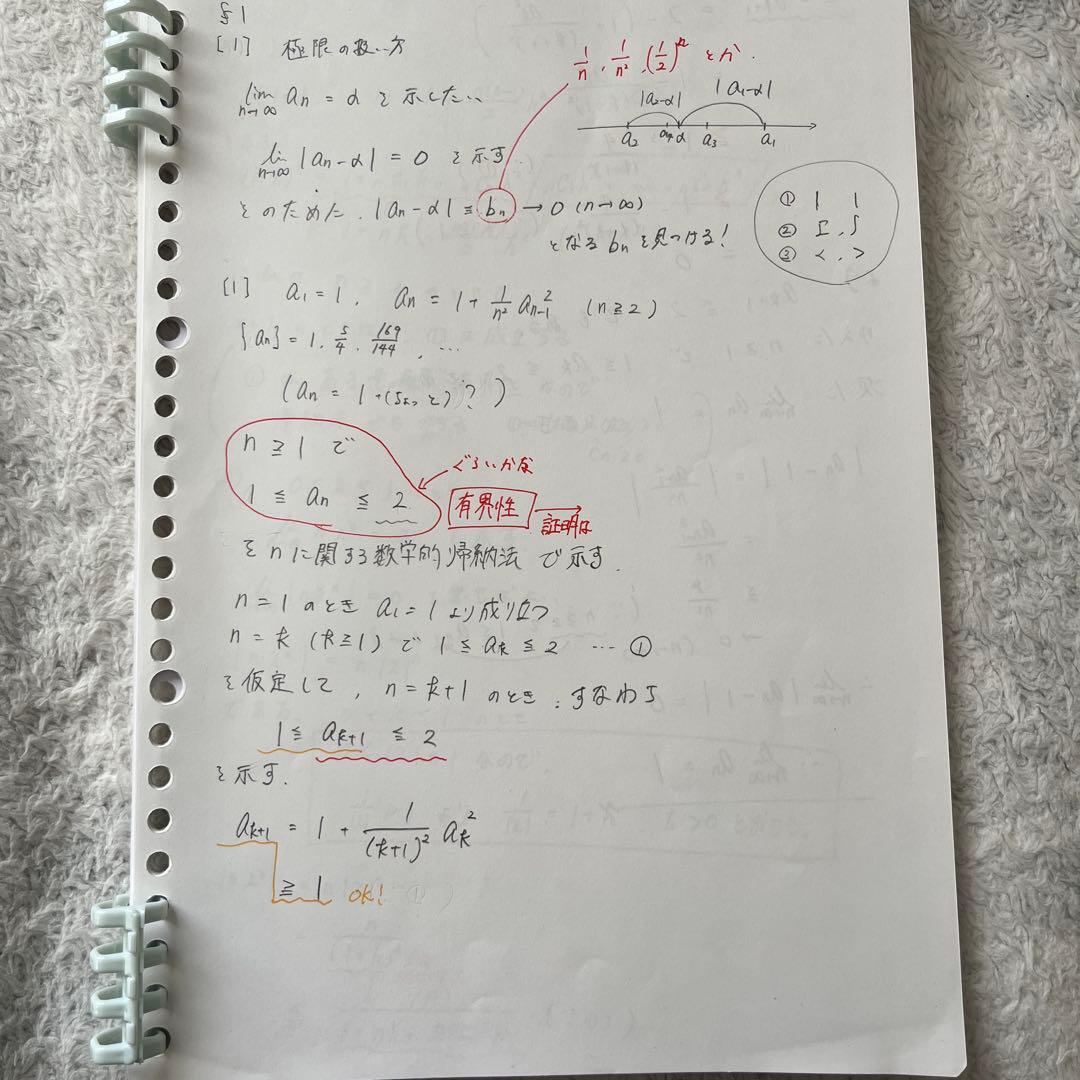 §1
[1] 極限の扱い方
1/n, 1/n², (1/2)ⁿ とか.
lim n→∞ an = α を示したい
|a2-α| |a1-α|
a2 a4 α a3 a1
lim n→∞ |an-α| = 0 を示す.
そのために, |an-α| ≦ bn → 0 (n→∞)
となる bn を見つける!
① | |
② Σ, ∫
③ <, >
[1] a1=1, an = 1 + 1/n² an-1² (n≧2)
{an} = 1, 5/4, 169/144, …
(an = 1+(ちょっと)?)
n ≧ 1 で
ぐらいかな
1 ≦ an ≦ 2
有界性 → 証明は
を n に関する数学的帰納法 で示す.
n=1 のとき a1=1 より成り立つ
n=k (k≧1) で 1 ≦ ak ≦ 2 … ①
を仮定して, n=k+1 のとき, すなわち
1 ≦ ak+1 ≦ 2
を示す.
ak+1 = 1 + 1/(k+1)² ak²
≧ 1 OK!